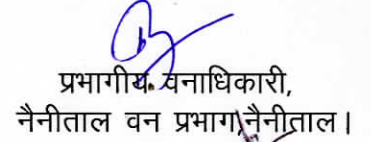 प्रभागीय वनाधिकारी,
नैनीताल वन प्रभाग,नैनीताल।